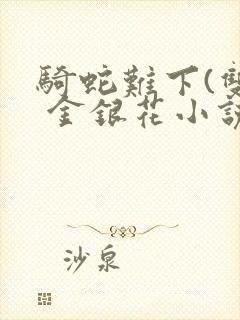 騎蛇難下(雙
金銀花小說
沙泉